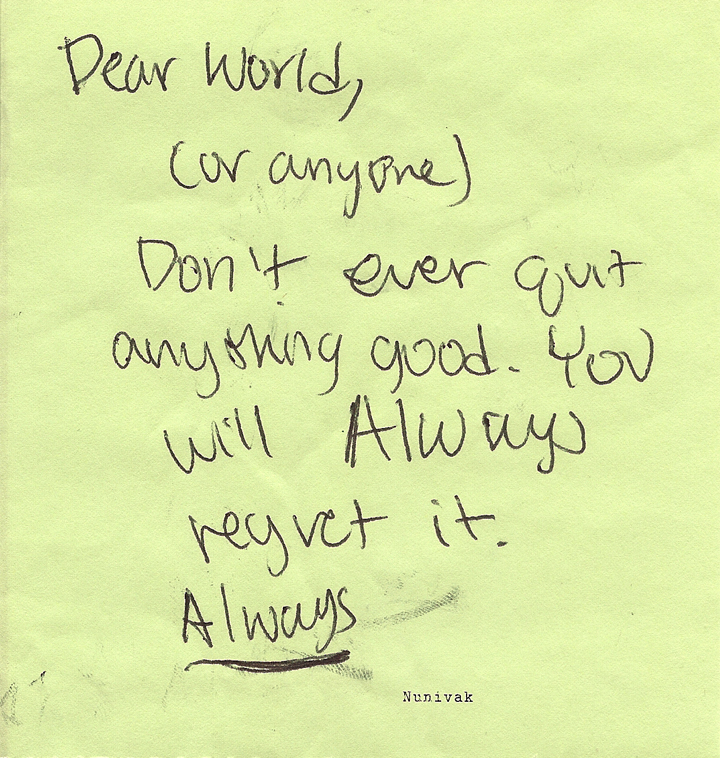 Dear World,
(or anyone)
Don't ever quit
anything good. You
will Always
regret it.
Always
Nunivak